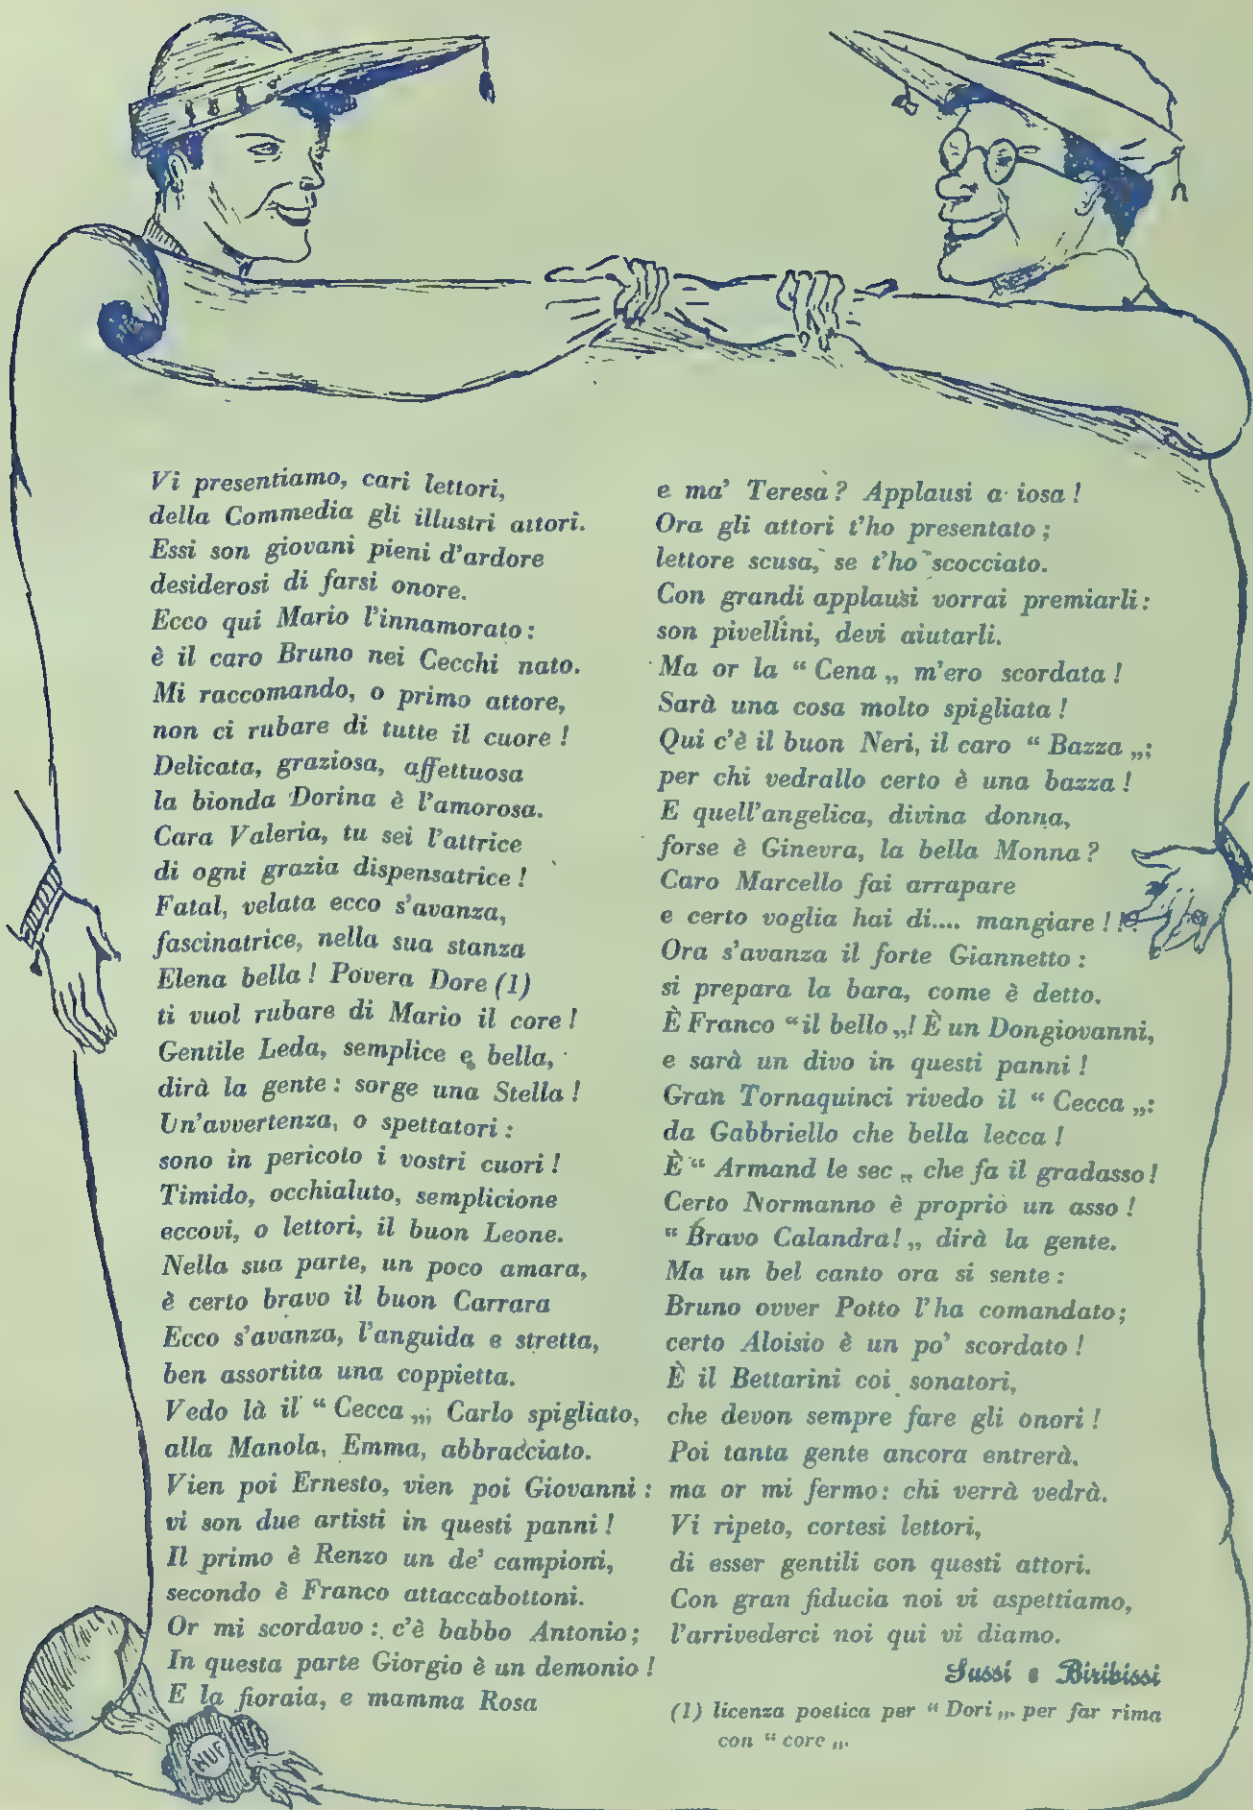 Vi presentiamo, cari lettori,
della Commedia gli illustri attori.
Essi son giovani pieni d'ardore
desiderosi di farsi onore.
Ecco qui Mario l'innamorato:
è il caro Bruno nei Cecchi nato.
Mi raccomando, o primo attore,
non ci rubare di tutte il cuore!
Delicata, graziosa, affettuosa
la bionda Dorina è l'amorosa.
Cara Valeria, tu sei l'attrice
di ogni grazia dispensatrice!
Fatal, velata ecco s'avanza,
fascinatrice, nella sua stanza
Elena bella! Povera Dore (1)
ti vuol rubare di Mario il core!
Gentile Leda, semplice e bella,
dirà la gente: sorge una Stella!
Un'avvertenza, o spettatori:
sono in pericolo i vostri cuori!
Timido, occhialuto, semplicione
eccovi, o lettori, il buon Leone.
Nella sua parte, un poco amara,
è certo bravo il buon Carrara
Ecco s'avanza, l'anguida e stretta,
ben assortita una coppietta.
Vedo là il “ Cecca „; Carlo spigliato,
alla Manola, Emma, abbracciato.
Vien poi Ernesto, vien poi Giovanni:
vi son due artisti in questi panni!
Il primo è Renzo un de' campioni,
secondo è Franco attaccabottoni.
Or mi scordavo: c'è babbo Antonio;
In questa parte Giorgio è un demonio!
E la fioraia, e mamma Rosa
e ma' Teresa? Applausi a iosa!
Ora gli attori t'ho presentato;
lettore scusa, se t'ho scocciato.
Con grandi applausi vorrai premiarli:
son pivellini, devi aiutarli.
Ma or la “ Cena „ m'ero scordata!
Sarà una cosa molto spigliata!
Qui c'è il buon Neri, il caro “ Bazza „;
per chi vedrallo certo è una bazza!
E quell'angelica, divina donna,
forse è Ginevra, la bella Monna?
Caro Marcello fai arrapare
e certo voglia hai di.... mangiare!!
Ora s'avanza il forte Giannetto:
si prepara la bara, come è detto.
È Franco “ il bello „! È un Dongiovanni,
e sarà un divo in questi panni!
Gran Tornaquinci rivedo il “ Cecca „:
da Gabbriello che bella lecca!
È “ Armand le sec „ che fa il gradasso!
Certo Normanno è proprio un asso!
“ Bravo Calandra! „ dirà la gente.
Ma un bel canto ora si sente:
Bruno ovver Potto l'ha comandato;
certo Aloisio è un po' scordato!
È il Bettarini coi sonatori,
che devon sempre fare gli onori!
Poi tanta gente ancora entrerà,
ma or mi fermo: chi verrà vedrà.
Vi ripeto, cortesi lettori,
di esser gentili con questi attori.
Con gran fiducia noi vi aspettiamo,
l'arrivederci noi qui vi diamo.
Sussi e Biribissi
(1) licenza poetica per “ Dori „. per far rima
con “ core „.
NUF